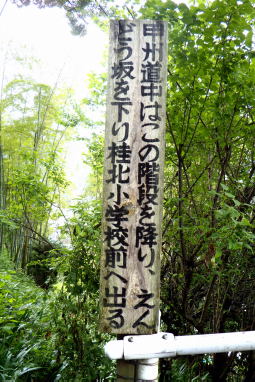 甲州道中はこの階段を降り、えん
どう坂を下り桂北小学校前へ出る